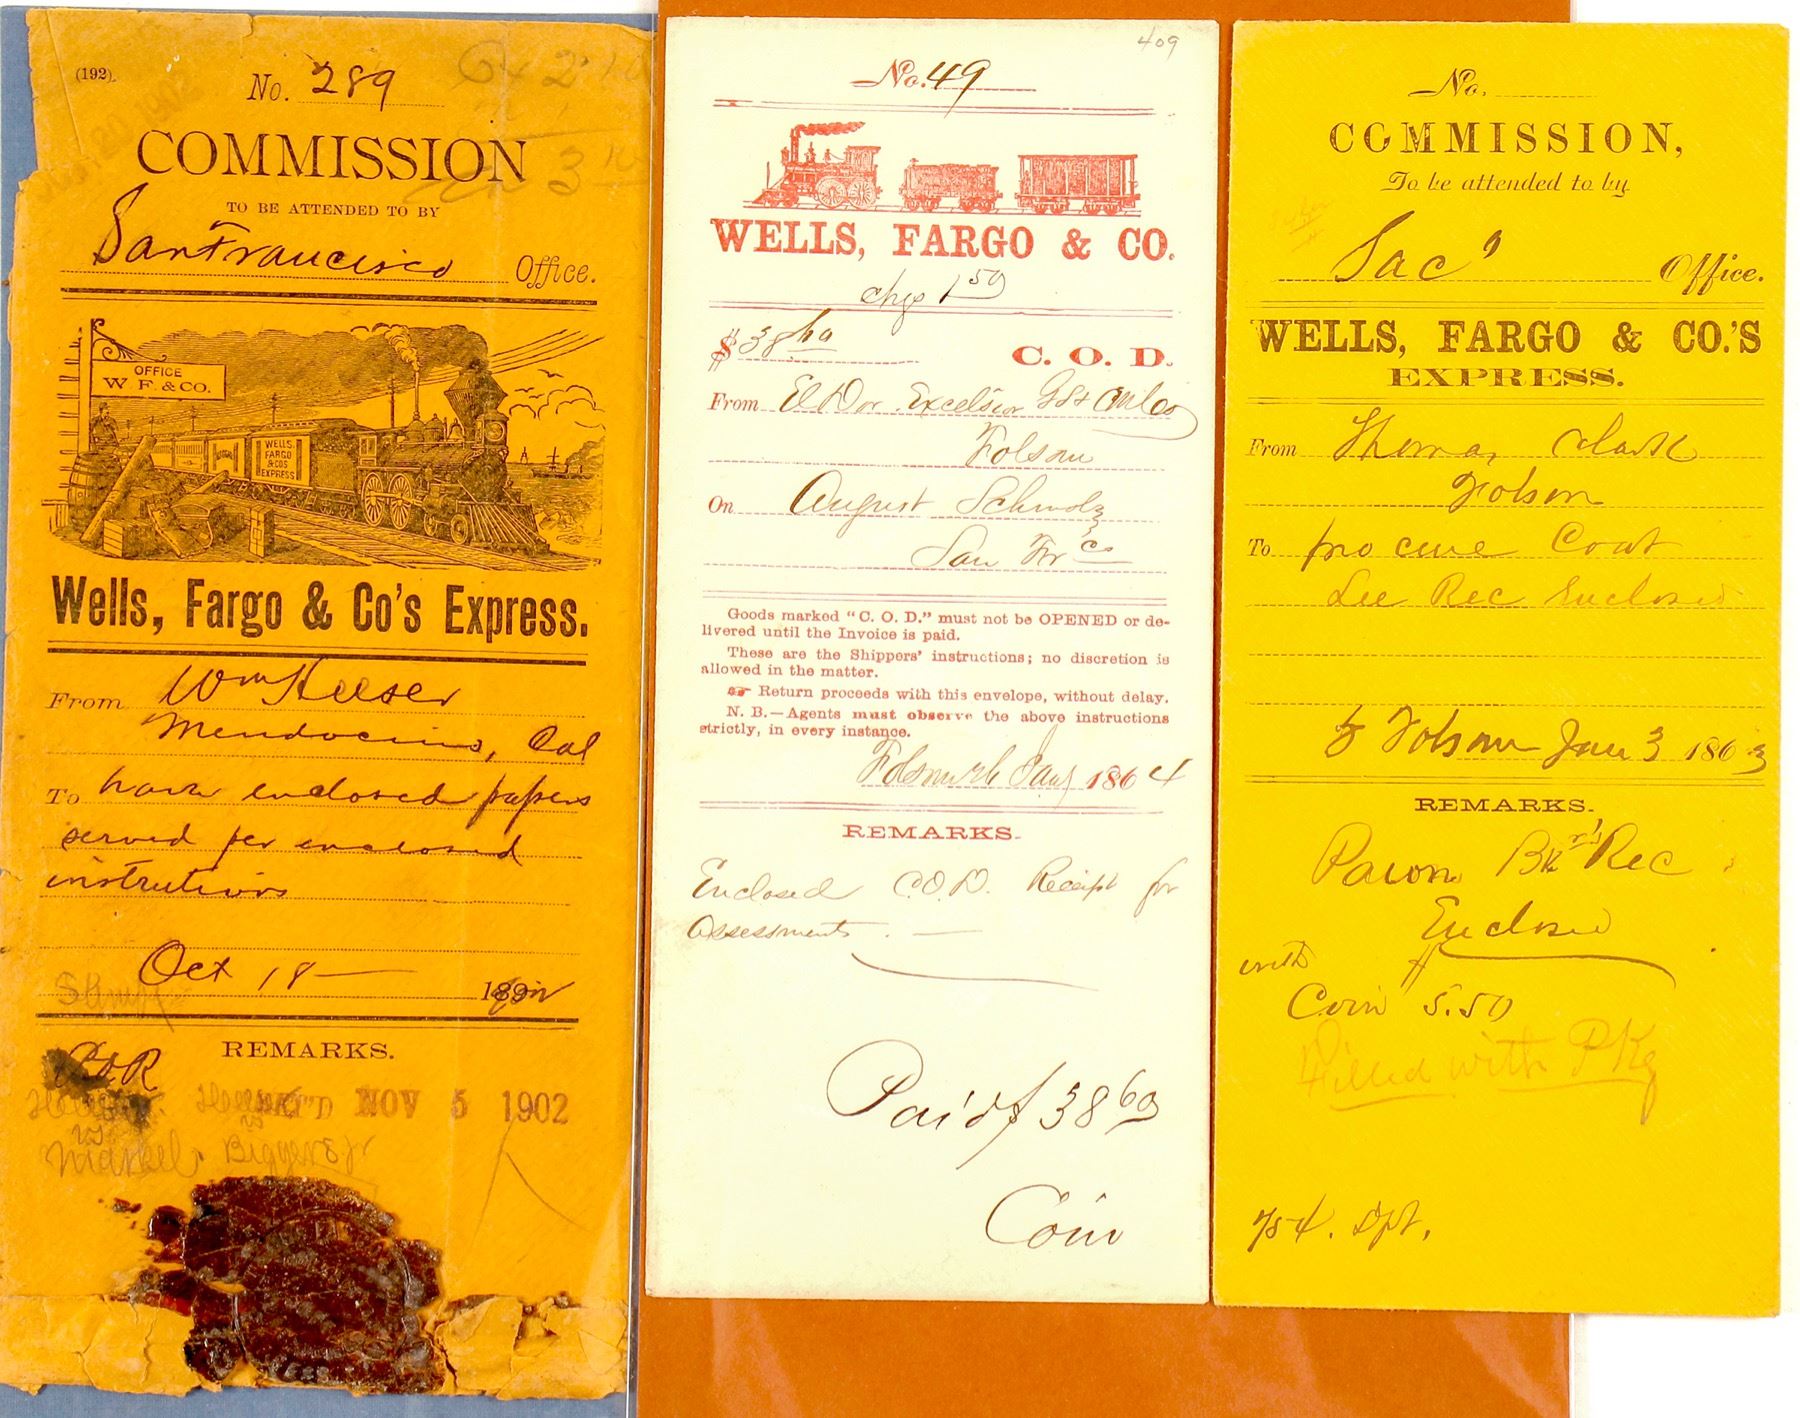 (192).
No. 289
COMMISSION
TO BE ATTENDED TO BY
San Francisco Office.
OFFICE
W. F. & CO.
WELLS
FARGO
& COS
EXPRESS
Wells, Fargo & Co's Express.
From Wm Heeser
Mendocino, Cal
To have enclosed papers
served per enclosed
instrutions
Oct 18 — 189
REMARKS.
NOV 5 1902
vs vs
Markel. Biggers Jr
409
No. 49
WELLS, FARGO & CO.
chgs 1 50
$ 38 60 C. O. D.
From El Dor. Excelsior G S & M Co
Folsom
On August Schmolz
San Frco
Goods marked "C. O. D." must not be OPENED or de-
livered until the Invoice is paid.
These are the Shippers' instructions; no discretion is
allowed in the matter.
☞ Return proceeds with this envelope, without delay.
N. B.—Agents must observe the above instructions
strictly, in every instance.
Folsom Jany 1864
REMARKS.
Enclosed C.O.D. Receipt for
Assessments. —
Paid $ 38 60
Coin
No.
COMMISSION,
To be attended to by
Sac' Office.
WELLS, FARGO & CO.'S
EXPRESS.
From Thomas Clark
Folsom
To procure Coat
See Rec Enclosed
Folsom Jan 3 1863
REMARKS.
Pawn Bkr's Rec
Enclosed
with
Coin 5.50
Filled with PKg
754. Dpt.